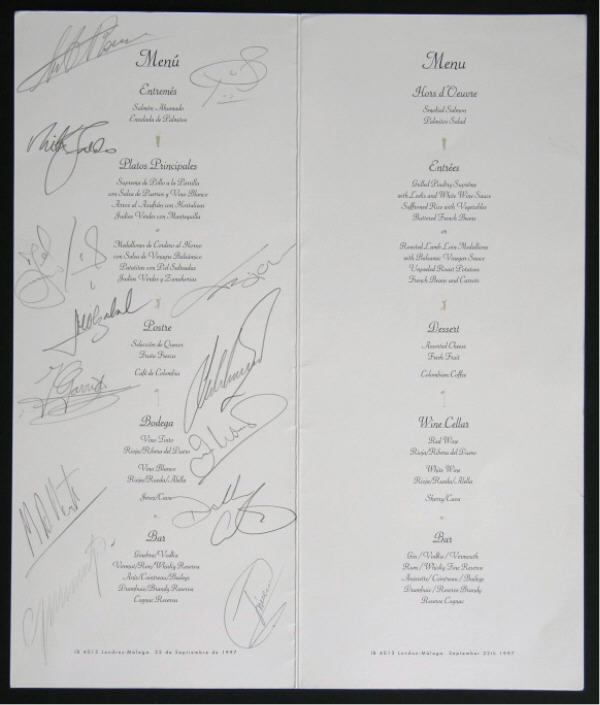 Menú
Entremés
Salmón Ahumado
Ensalada de Palmitos
Platos Principales
Suprema de Pollo a la Parrilla
con Salsa de Puerros y Vino Blanco
Arroz al Azafrán con Hortalizas
Judías Verdes con Mantequilla
o
Medallones de Cordero al Horno
con Salsa de Vinagre Balsámico
Patatitas con Piel Salteadas
Judías Verdes y Zanahorias
Postre
Selección de Quesos
Fruta Fresca
Café de Colombia
Bodega
Vino Tinto
Rioja/Ribera del Duero
Vino Blanco
Rioja/Rueda/Alella
Jerez/Cava
Bar
Ginebra/Vodka
Vermut/Ron/Whisky Reserva
Anís/Cointreau/Baileys
Drambuie/Brandy Reserva
Cognac Reserva
IB 6013 Londres-Málaga 25 de Septiembre de 1997
Menu
Hors d'Oeuvre
Smoked Salmon
Palmitos Salad
Entrées
Grilled Poultry Suprême
with Leeks and White Wine Sauce
Saffroned Rice with Vegetables
Buttered French Beans
or
Roasted Lamb Loin Medallions
with Balsamic Vinegar Sauce
Unpeeled Roast Potatoes
French Beans and Carrots
Dessert
Assorted Cheese
Fresh Fruit
Colombian Coffee
Wine Cellar
Red Wine
Rioja/Ribera del Duero
White Wine
Rioja/Rueda/Alella
Sherry/Cava
Bar
Gin / Vodka / Vermouth
Rum / Whisky Fine Reserve
Anissette / Cointreau / Baileys
Drambuie / Reserve Brandy
Reserve Cognac
IB 6013 London-Málaga September 25th 1997